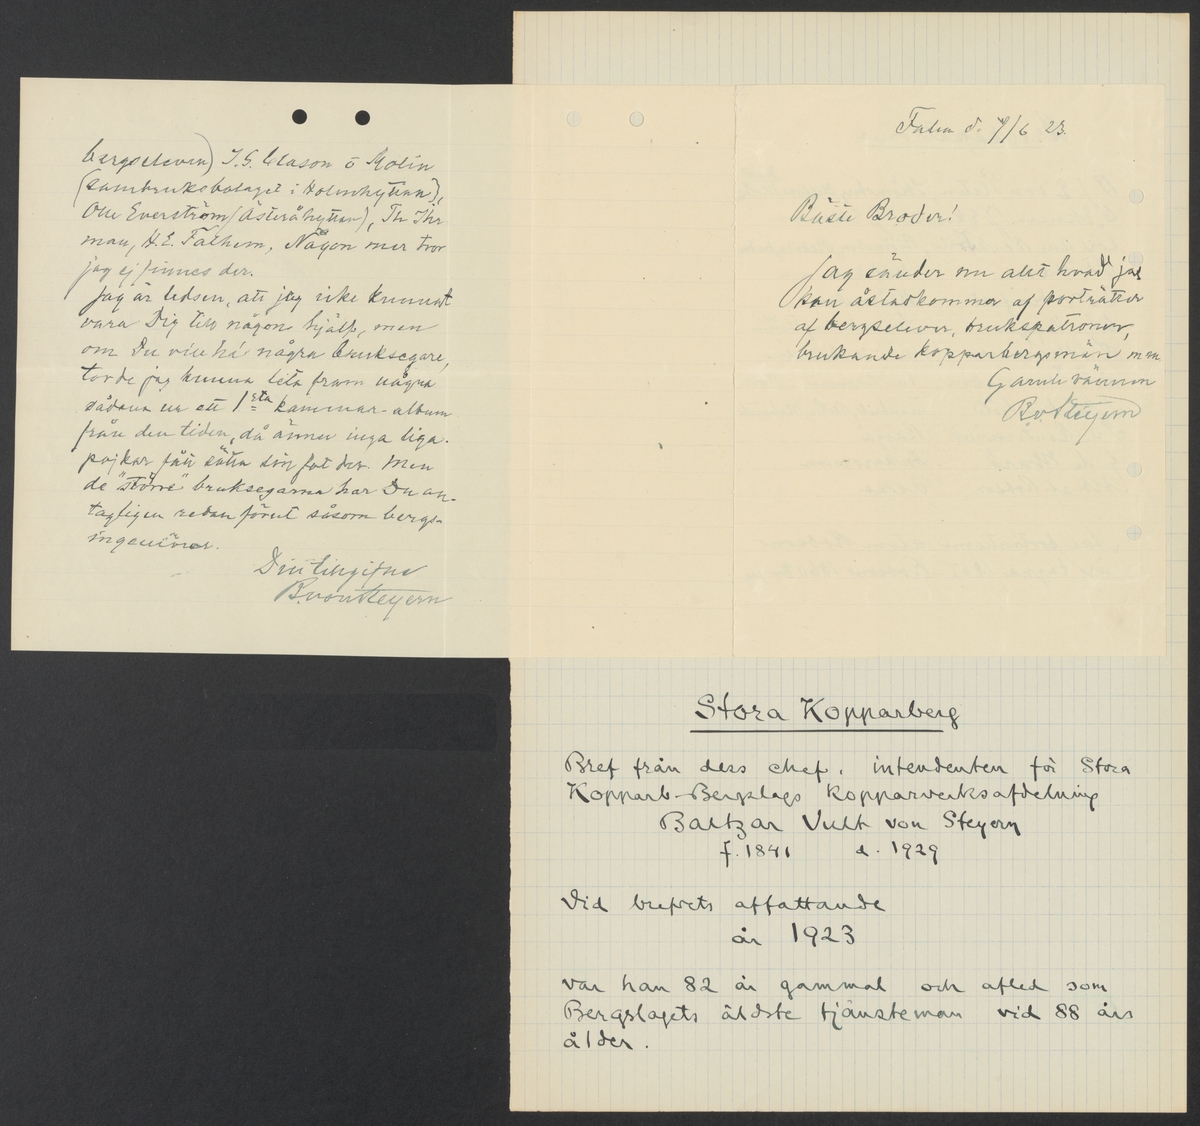 bergseleven) I. G. Clason o Molin
(Sambruksbolaget i Holmhyttan),
Olle Everström (Österåhyttan), Th Ihr
man, H. E. Fathem, Någon mer tror
jag ej finnes der.
Jag är ledsen, att jag icke kunnat
vara Dig till någon hjälp, men
om Du vill ha några bruksegare,
torde jag kunna leta fram några
sådana ur ett 1sta kammar-album
från den tiden, då ännu inga liga-
pojkar fått sätta sin fot der. Men
de "större" bruksegarna har Du an-
tagligen redan förut såsom bergs-
ingeniörer.
Din tillgifne
B. von Steyern
Falun d. /6 23.
Bäste Broder!
Jag sänder nu allt hvad jag
kan åstadkomma af porträtter
af bergselever, brukspatroner,
brukande kopparbergsmän m m
Gamle vännen
B. v. Steyern
Stora Kopparberg
Bref från dess chef, intendenten för Stora
Kopparb-Bergslags kopparverksafdelning
Baltzar Vult von Steyern
f. 1841 d. 1929
Vid brefvets affattande
år 1923
var han 82 år gammal och afled som
Bergslagets äldste tjänsteman vid 88 års
ålder.